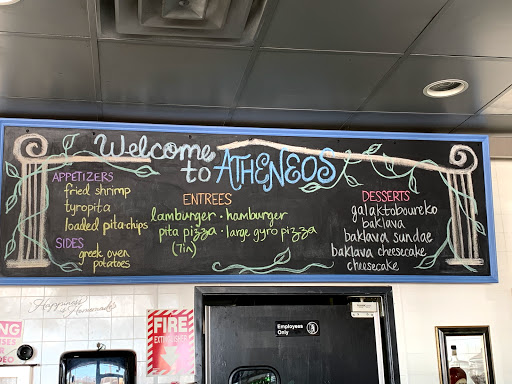 Welcome
to ATHENEOS
APPETIZERS
fried shrimp
tyropita
loaded pita chips
SIDES
greek oven
potatoes
ENTREES
lamburger · hamburger
pita pizza · large gyro pizza
(7in)
DESSERTS
galaktoboureko
baklava
baklava sundae
baklava cheesecake
cheesecake
Happiness
is Homemade
FIRE
EXTINGUISHER
Employees
Only